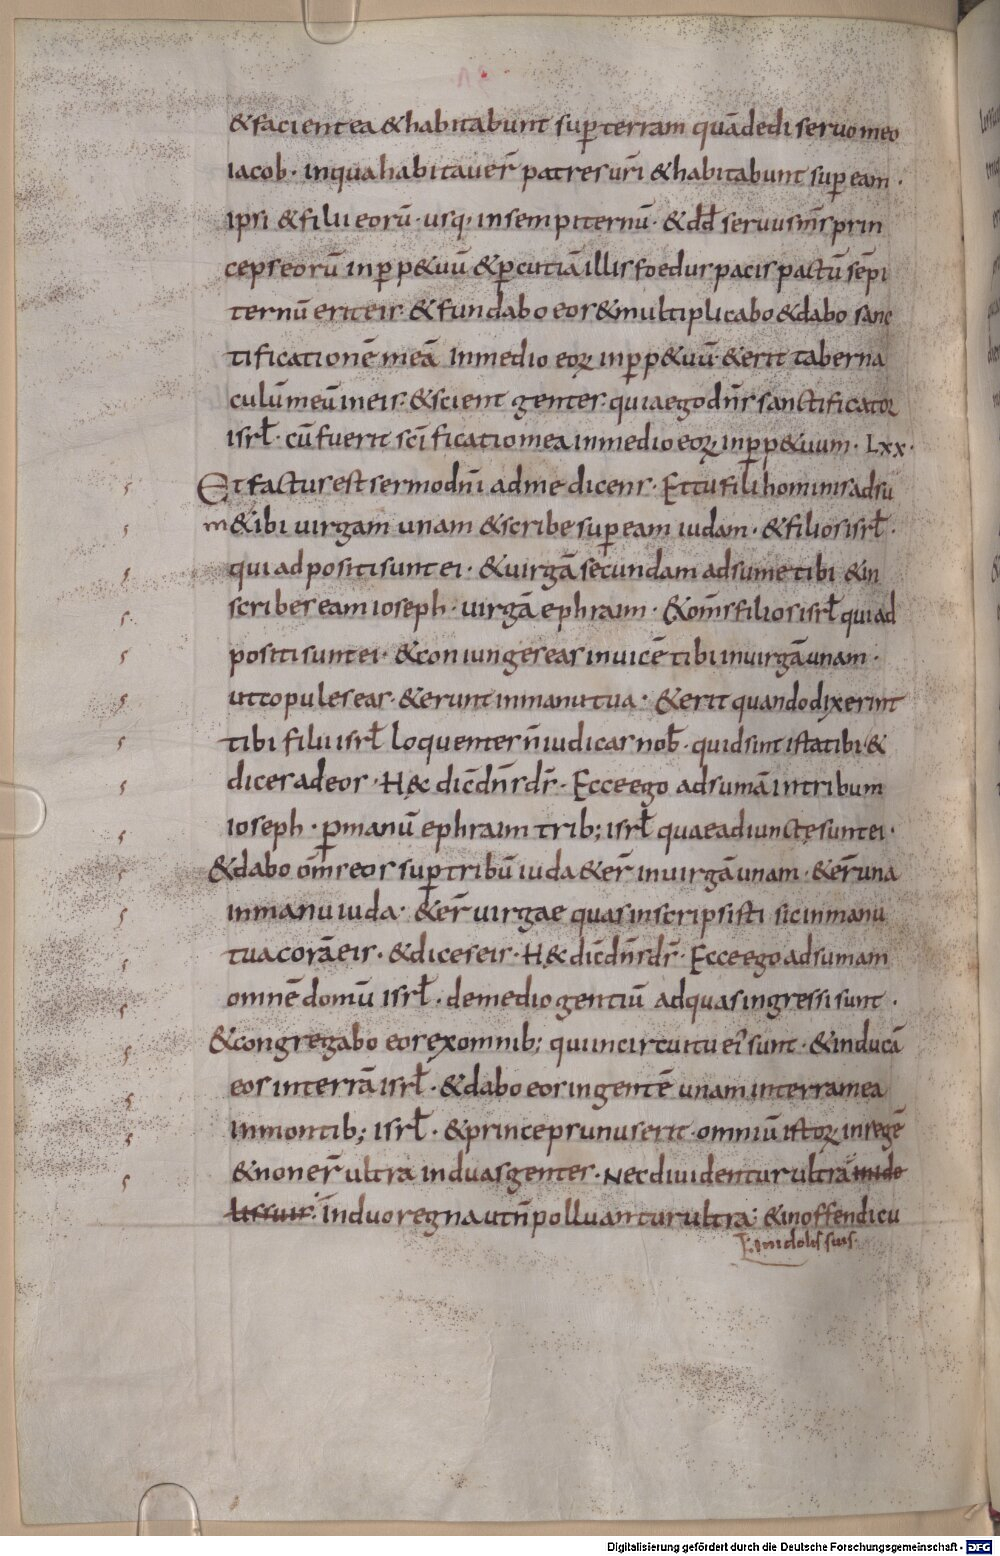 &facient ea &habitabunt sup̱ terram quā dedi seruo meo
iacob · in qua habitauer̄ patres ur̄i &habitabunt sup̱ eam ·
ipsi & filii eorū · usq; in sempiternū · & dd̄ seruus m̄s prin
ceps eorū in p̱p&uū &p̱cutiā illis foedus pacis pactū sēpi
ternū erit eis · & fundabo eos &multiplicabo &dabo sanc
tificationē meā in medio eoꝝ in p̱p&uū · &erit taberna
culū meū in eis · &scient gentes quia ego dn̄s sanctificatoꝝ
isrł · cū fuerit sc̄ificatio mea in medio eoꝝ · in p̱p&uum · Lxx ·
Et factus est sermo dn̄i ad me dicens · Et tu fili hominis adsu
m& ibi uirgam unam &scribe sup̱ eam iudam · &filios isrł ·
qui adpositi sunt ei · &uirgā secundam adsume tibi &in
scribes eam ioseph · uirgā ephraim · &om̄s filios isrł qui ad
positi sunt ei · &coniunges eas inuicē tibi in uirgā unam ·
ut copules eas · &erunt in manu tua · &erit quando dixerint
tibi filii isrł loquentes n̄ iudicas nob̄ · quid sint ista tibi &
dices ad eos · H&c dic̄ dn̄s ds̄ · Ecce ego adsumā in tribum
ioseph · p̱ manū ephraim trib; isrł quae adiunctę sunt ei ·
&dabo om̄es eos sup̱ tribū iuda &er̄ in uirgā unam · &er̄ una
in manu iuda · &er̄ uirgae quas inscripsisti sic in manu
tua corā eis · &dices eis · H&c dic̄ dn̄s ds̄ · Ecce ego adsumam
omnē domū isrł · de medio gentiū ad quas ingressi sunt ·
&congregabo eos ex omnib; qui in circuitu ei sunt · &inducā
eos in terrā isrł · &dabo eos in gentē unam in terra mea
in montib; isrł · &princeps unus erit omniū istoꝝ in regē
&non er̄ ultra in duas gentes · Nec diuidentur ultra in ido
lis suis · in duo regna ut n̄ polluantur ultra : &in offendicu
in idolis suis ·